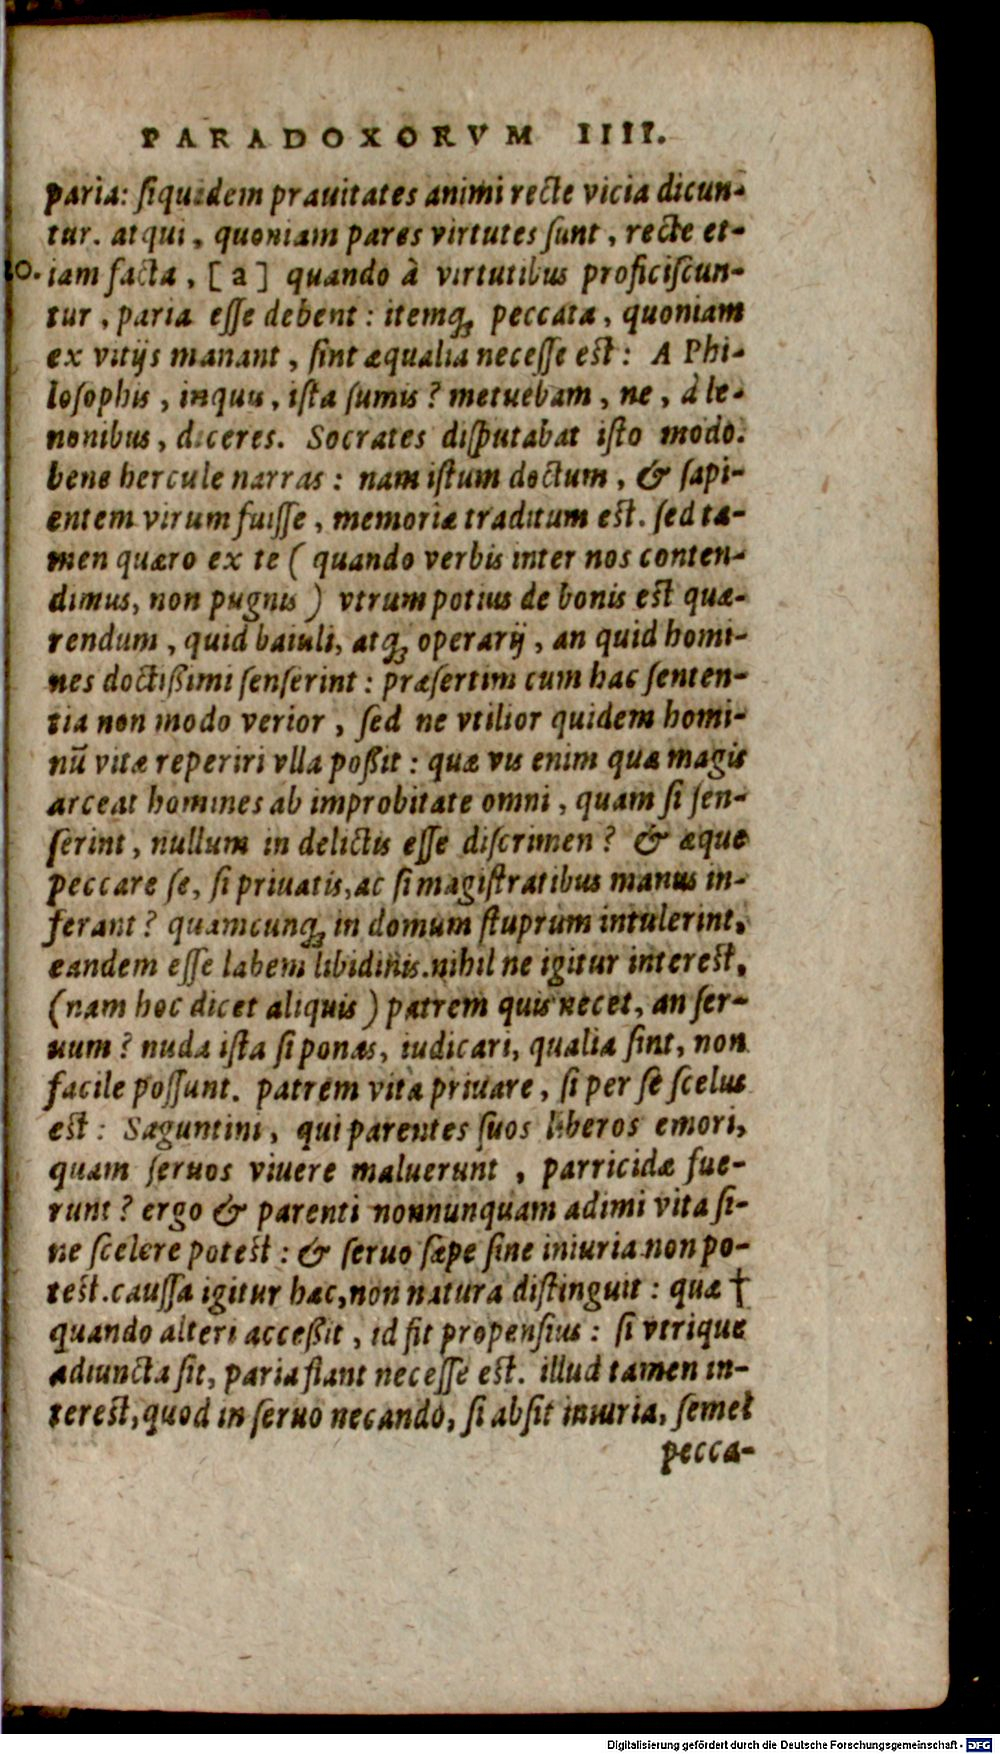 PARADOXORVM IIII.
paria: siquidem prauitates animi recte vicia dicun-
tur. atqui, quoniam pares virtutes sunt, recte et-
10. iam facta, [a] quando à virtutibus proficiscun-
tur, paria esse debent: itemq́; peccata, quoniam
ex vitijs manant, sint æqualia necesse est: A Phi-
losophis, inquis, ista sumis? metuebam, ne, à le-
nonibus, diceres. Socrates disputabat isto modo.
bene hercule narras: nam istum doctum, & sapi-
entem virum fuisse, memoriæ traditum est. sed ta-
men quæro ex te (quando verbis inter nos conten-
dimus, non pugnis) vtrum potius de bonis est quæ-
rendum, quid baiuli, atq́; operarij, an quid homi-
nes doctißimi senserint: præsertim cum hac senten-
tia non modo verior, sed ne vtilior quidem homi-
nū vitæ reperiri vlla poßit: quæ vis enim quæ magis
arceat homines ab improbitate omni, quam si sen-
serint, nullum in delictis esse discrimen? & æque
peccare se, si priuatis, ac si magistratibus manus in-
ferant? quamcunq́; in domum stuprum intulerint,
eandem esse labem libidinis. nihil ne igitur interest,
(nam hoc dicet aliquis) patrem quis necet, an ser-
uum? nuda ista si ponas, iudicari, qualia sint, non
facile possunt. patrem vita priuare, si per se scelus
est: Saguntini, qui parentes suos liberos emori,
quam seruos viuere maluerunt, parricidæ fue-
runt? ergo & parenti nonnunquam adimi vita si-
ne scelere potest: & seruo sæpe sine iniuria non po-
test. caussa igitur hæc, non natura distinguit: quæ †
quando alteri acceßit, id fit propensius: si vtrique
adiuncta sit, paria fiant necesse est. illud tamen in-
terest, quod in seruo necando, si absit iniuria, semel
pecca-
Digitalisierung gefördert durch die Deutsche Forschungsgemeinschaft - DFG